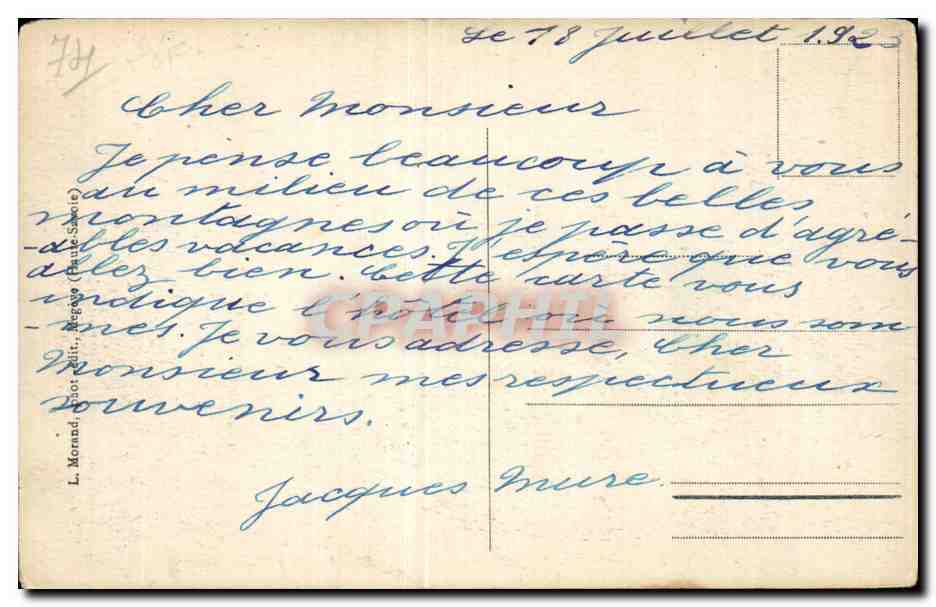 74
Le 18 Juillet 1923
Cher Monsieur
Je pense beaucoup à vous
au milieu de ces belles
montagnes où je passe d'agré-
-ables vacances. J'espère que vous
allez bien. Cette carte vous
indique l'hôtel où nous som
-mes. Je vous adresse, Cher
Monsieur mes respectueux
souvenirs.
Jacques Mure.
L. Morand, phot édit., Megève (Haute-Savoie)
CPAPHIL